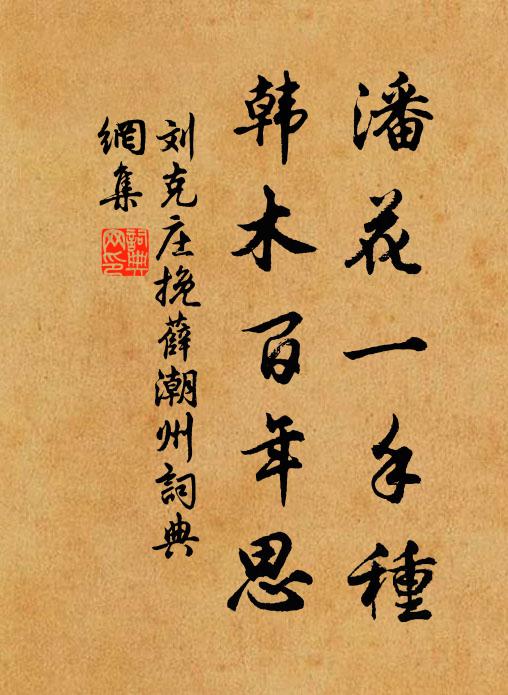 潘花一手種
韩木百年思
刘克庄挽薛潮州詞典
網集
詞典
网印